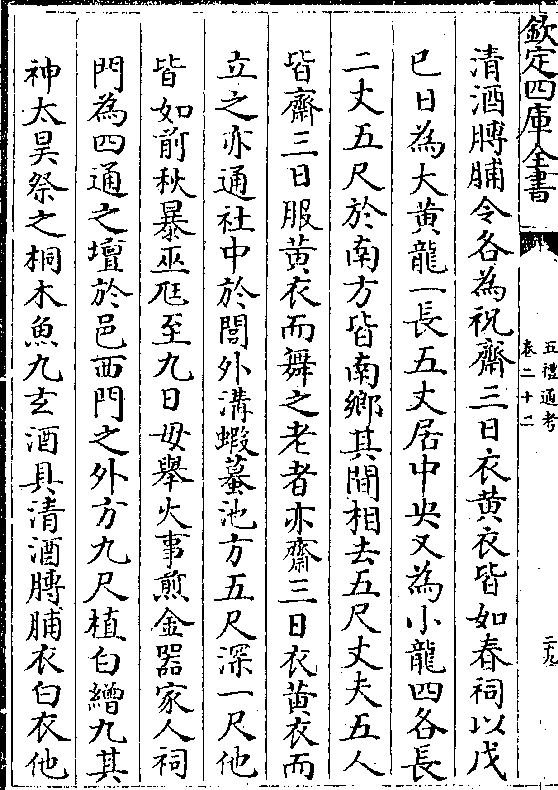 欽定四庫全書
五禮通考
卷二十二
二九
清酒膊脯令各為祝齋三日衣黃衣皆如春祠以戊
巳日為大黃龍一長五丈居中央又為小龍四各長
二丈五尺於南方皆南鄉其間相去五尺丈夫五人
皆齋三日服黃衣而舞之老者亦齋三日衣黃衣而
立之亦通社中於閭外溝蝦蟇池方五尺深一尺他
皆如前秋暴巫尫至九日毋舉火事煎金器家人祠
門為四通之壇於邑西門之外方九尺植白繒九其
神太昊祭之桐木魚九玄酒具清酒膊脯衣白衣他